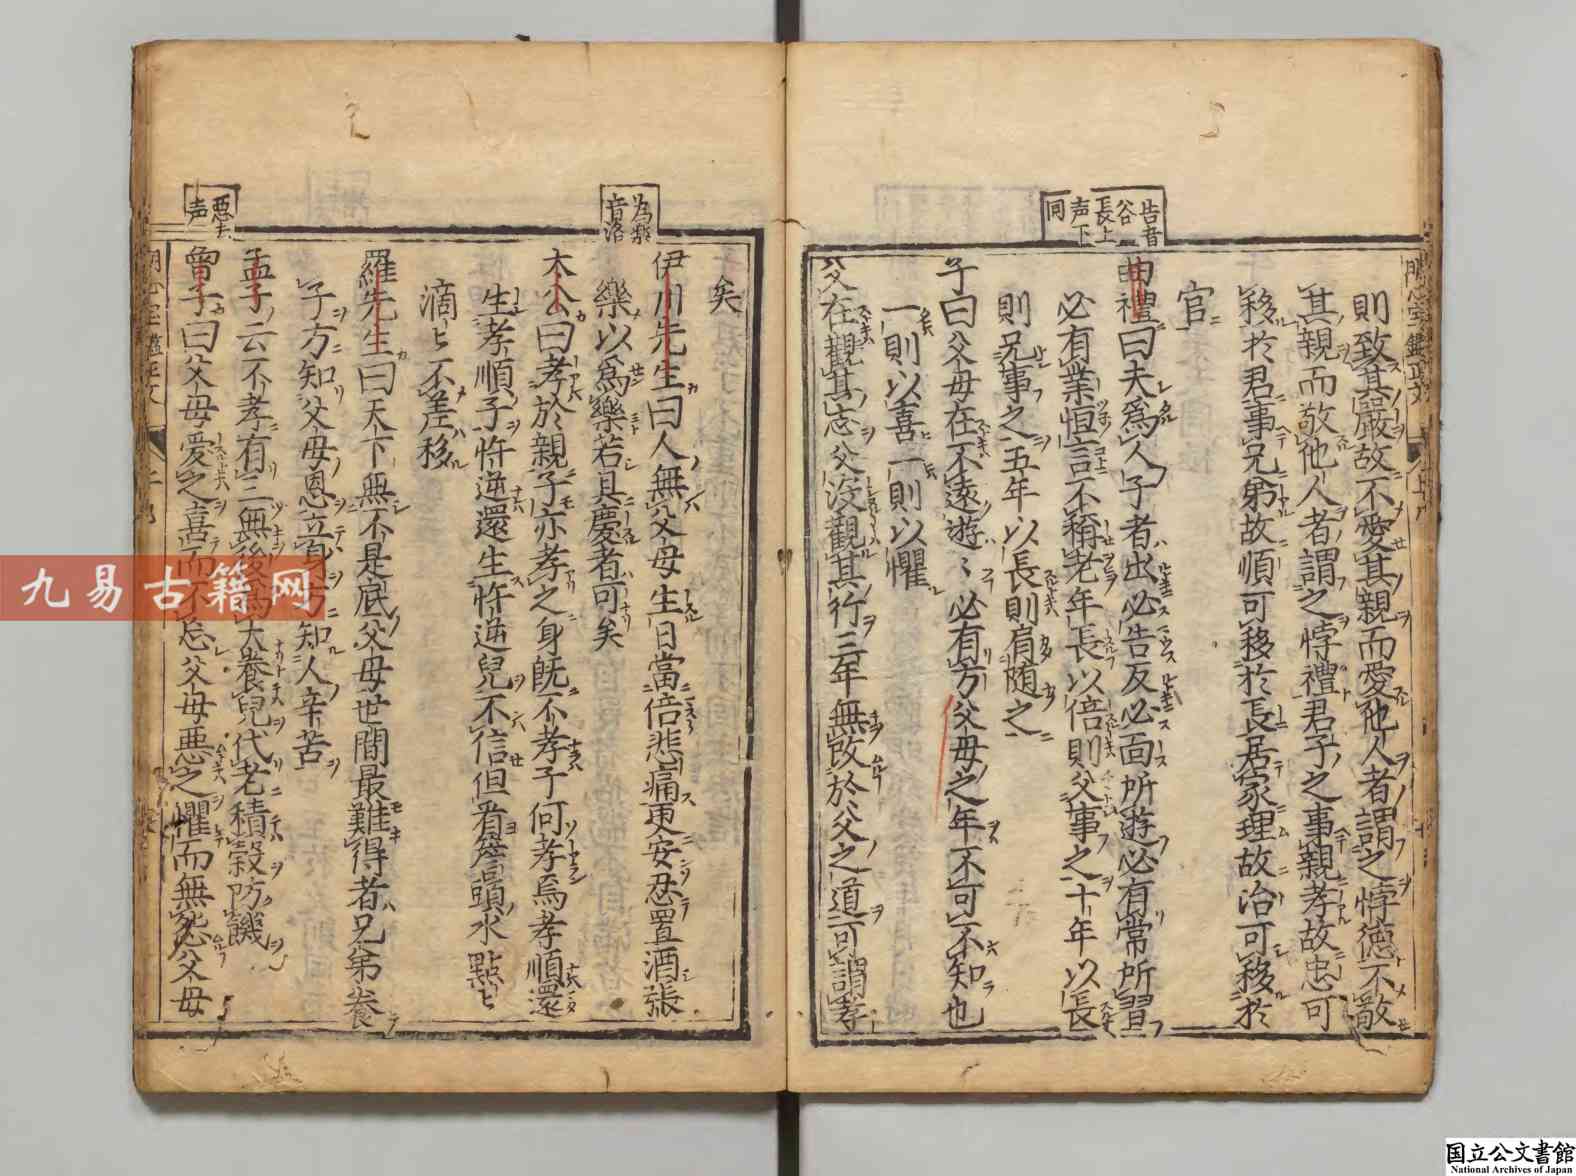 則致其嚴故不愛其親而愛他人者謂之悖德不敬
其親而敬他人者謂之悖禮君子之事親孝故忠可
移於君事兄弟故順可移於長居家理故治可移於
官
告音
谷
長上
声下
同
曲禮曰夫爲人子者出必告反必面所遊必有常所習
必有業恒言不稱老年長以倍則父事之十年以長
則兄事之五年以長則肩随之
子曰父母在不遠遊〻必有方父母之年不可不知也
一則以喜一則以懼
父在觀其志父没觀其行三年無改於父之道可謂孝
矣
為樂
音洛
伊川先生曰人無父母生日當倍悲痛更安忍置酒張
樂以爲樂若具慶者可矣
太公曰孝於親子亦孝之身既不孝子何孝焉孝順還
生孝順子忤逆還生忤逆兒不信但看簷頭水點〻
滴〻不差移
羅先生曰天下無不是底父母世間最難得者兄弟養
子方知父母恩立身方知人辛苦
孟子云不孝有三無後爲大養兒代老積穀防饑
悪去
声
曾子曰父母愛之喜而不忘父母悪之懼而無怨父母
九易古籍网
国立公文書館
National Archives of Japan